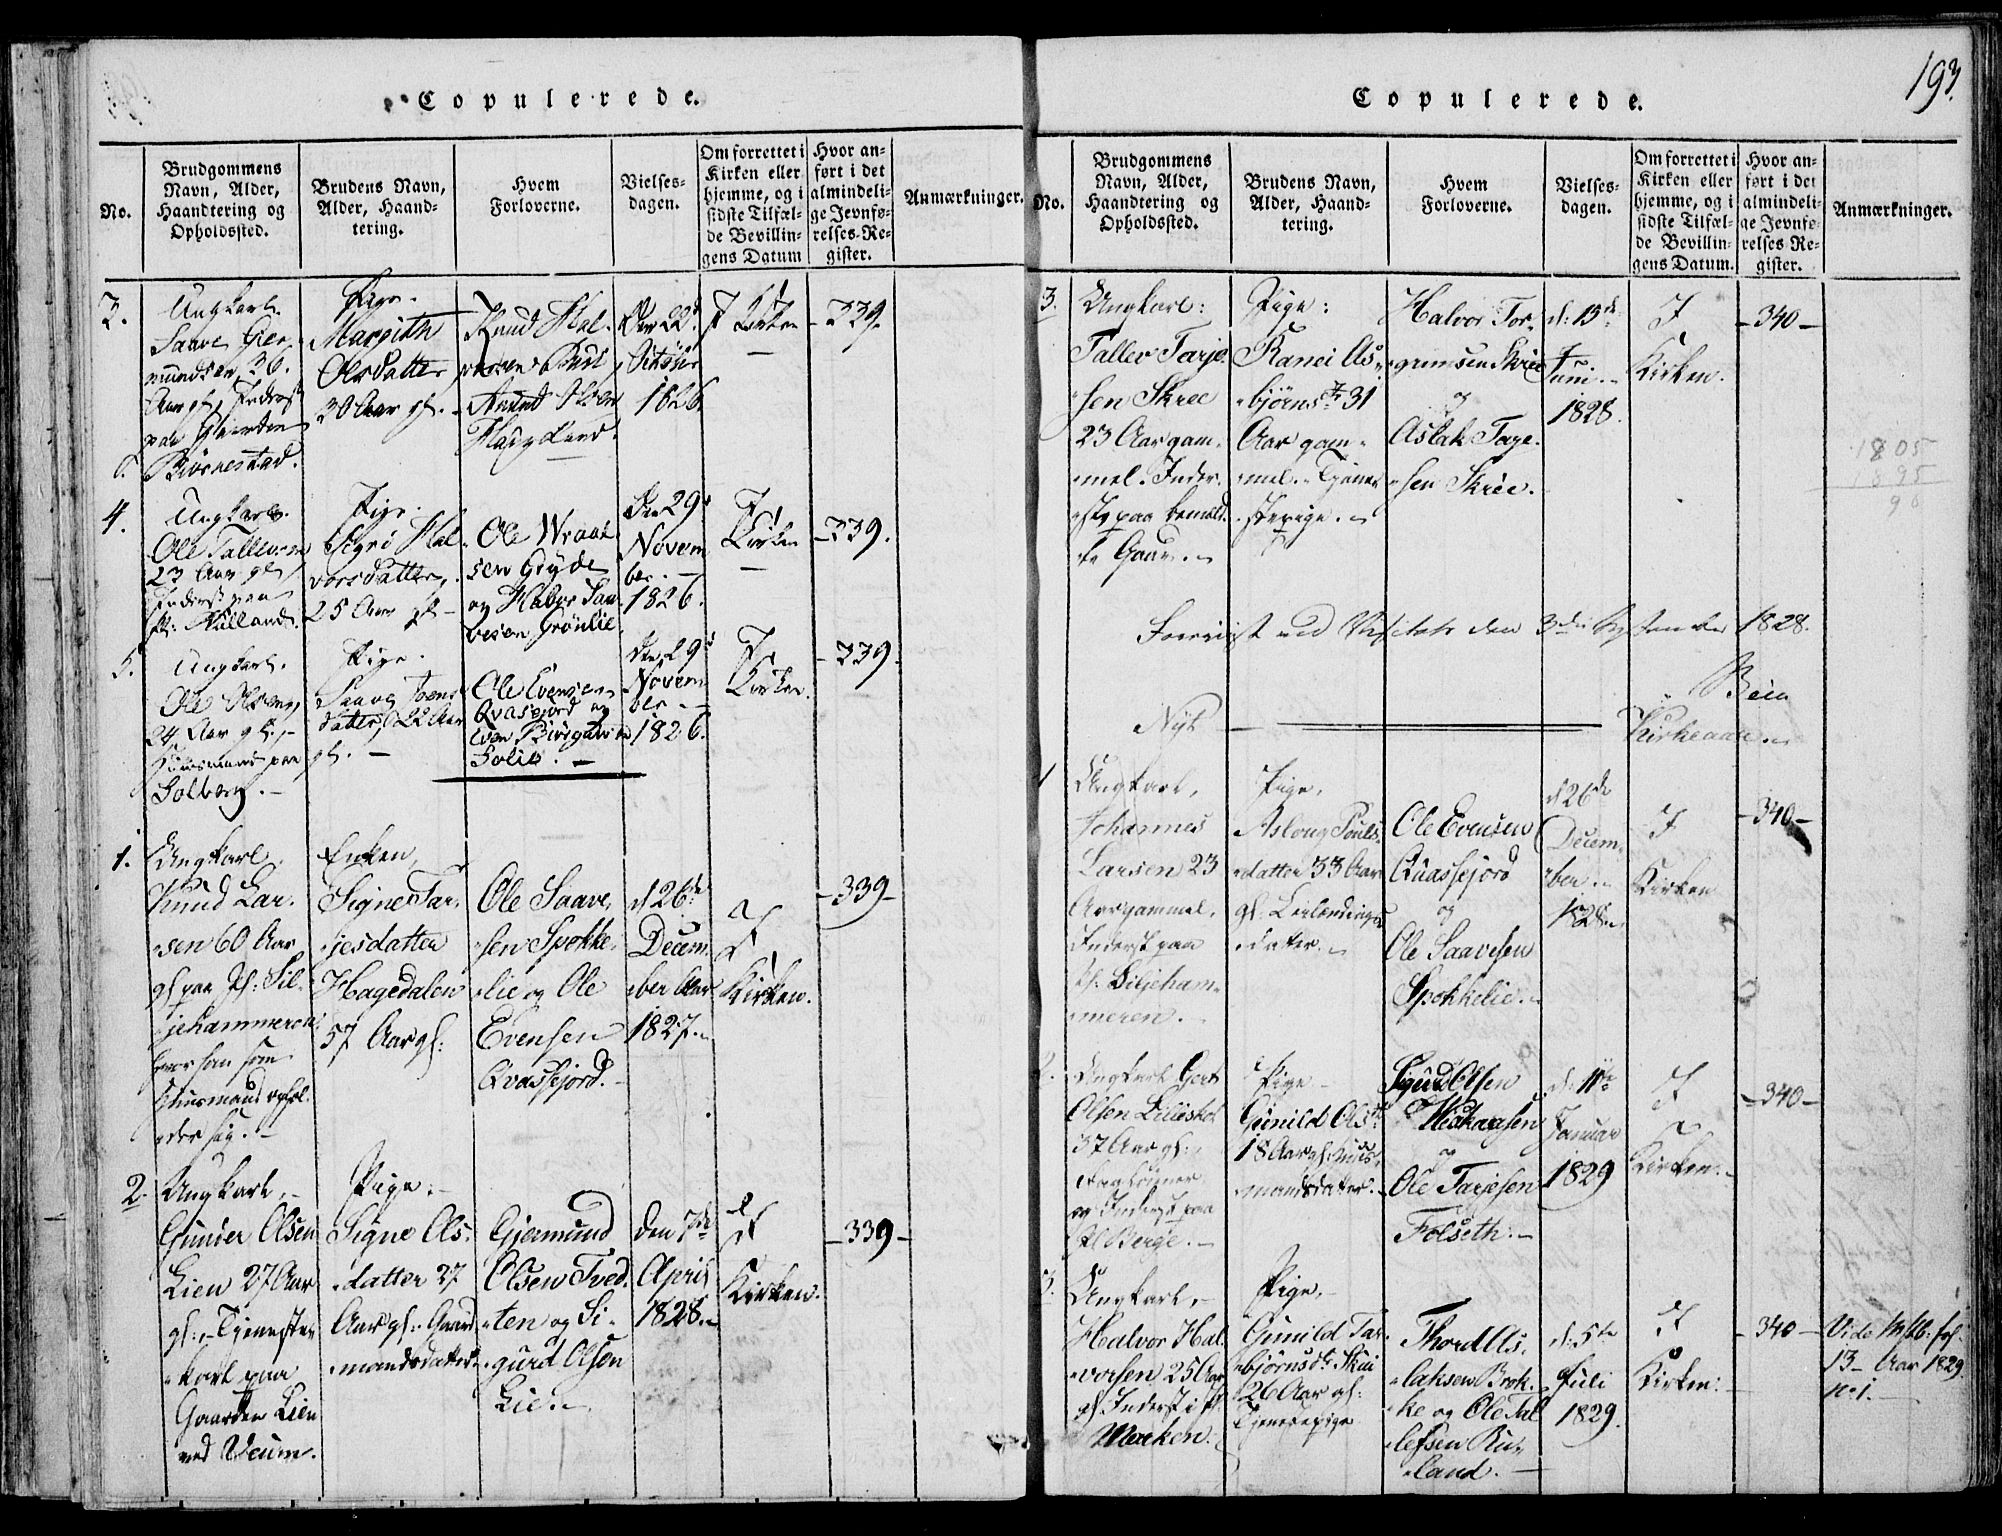 193.
Copulerede.
No.
Brudgommens
Navn, Alder,
Haandtering og
Opholdssted.
Brudens Navn,
Alder, Haand-
tering.
Hvem
Forloverne.
Vielses-
dagen.
Om forrettet i
Kirken eller
hjemme, og i
sidste Tilfæl-
de Bevillin-
gens Datum
Hvor an-
ført i det
almindeli-
ge Jevnfø-
relses-Re-
gister.
Anmærkninger.
3.
Ungkarl.
Saave Gier-
mundsen, 36.
Aar gl., Inderst
paa Gaarden
Birkestad.
Pige.
Margith
Olsdatter
30 Aar gl.
Knud Hal-
Aanund
Haugland.
Den 22d
October
1826
I Kirken
339.
4.
Ungkarl.
Ole Tallevsen
23 Aar gl.
Inderst paa
Pl.
Pige.
Sigri Hal-
vorsdatter,
25 Aar gl.
Ole Wraal
sen Gryde
og Halvor
Grönlie
Den 29d
Novem
ber.
1826.
I
Kirken
339.
5.
Ungkarl.
Ole Olsen,
24 Aar gl.,
Huusmand paa
Solberg.
Pige.
Saave Toens
datter, 22 Aar
gl.
Ole Evensen
Qvasfjord og
Solie.
Den 29d
Novem
ber
1826.
I
Kirken.
339.
1.
Ungkarl.
Knud Lar-
sen 60 Aar
gl. paa Pl: Sil-
jehammeren
hvor han som
Huusmand ophol-
der sig.
Enken,
Signe Tar-
jesdatter
Hagedalen
57 Aar gl:
Ole Saave-
sen Spokke-
lie og Ole
Evensen
Qvasfjord.
d 26de
Decem-
ber Aar
1827.
I
Kirken.
339
2.
Ungkarl,
Gunder Olsen
Lien 27 Aar
gl:, Tjeneste-
karl paa
Gaarden Lien
ved Veum.
Pige.
Signe Ols-
datter 27
Aar gl: Gaard-
mandsdatter
Gjermund
Olsen Tved-
ten og Si-
gurd Olsen
Lie.
Den 7de
April
1828.
I
Kirken.
339
Copulerede.
No.
Brudgommens
Navn, Alder,
Haandtering og
Opholdssted.
Brudens Navn,
Alder, Haand-
tering.
Hvem
Forloverne.
Vielses-
dagen.
Om forrettet i
Kirken eller
hjemme, og i
sidste Tilfæl-
de Bevillin-
gens Datum.
Hvor an-
ført i det
almindeli-
ge Jevnfø-
relses Re-
gister.
Anmærkninger.
3.
Ungkarl:
Tallev Tarje-
sen Skree
23 Aar gam-
mel. Inder-
ste paa bemeld-
te Gaar.
Pige:
Ranei As-
björnsdr 31
Aar gam-
mel. Tjene-
stepige.
Halvor Tor-
grimsen Skree
og
Aslak Tarje-
sen Skree.
d: 13de
Juni
1828.
I
Kirken.
340
1805
1395
90
Foreviist ved Visitats den 3die September 1828.
Nyt
Kirkeaar.
1
Ungkarl,
Johannes
Larsen 23
Aar gammel.
Inderst paa
Pl. Siljeham-
meren.
Pige,
Aslaug Pouls-
datter 33 Aar
gl: Leilændings-
datter.
Ole Evensen
Quasfejord
og
Ole Saavesen
Spokkelie.
d 26de
Decem-
ber.
1828.
I
Kirken
340
2.
Ungkarl
Olsen
37 Aar gl:,
Daglönner
og Inderst paa
Pl. Berge.
Pige
Gunild Olsdr
18 Aar gl: Huus-
mandsdatter.
Sigurd Olsen
og
Ole Tarjesen
Folseth.
d: 11te
Januar
1829
I
Kirken.
340
3.
Ungkarl,
Halvor Hal-
vorsen 25 Aar
gl. Inderst i Pl
Marken.
Pige,
Gunild Tar-
björnsdr
26 Aar gl:
Tjenestepige
Thord As-
laksen Brok-
ke og Ole Tal
lefsen Ru-
land.
d: 5te
Juli
1829.
I
Kirken.
340
Vide
13 Aar 1829
No 1.